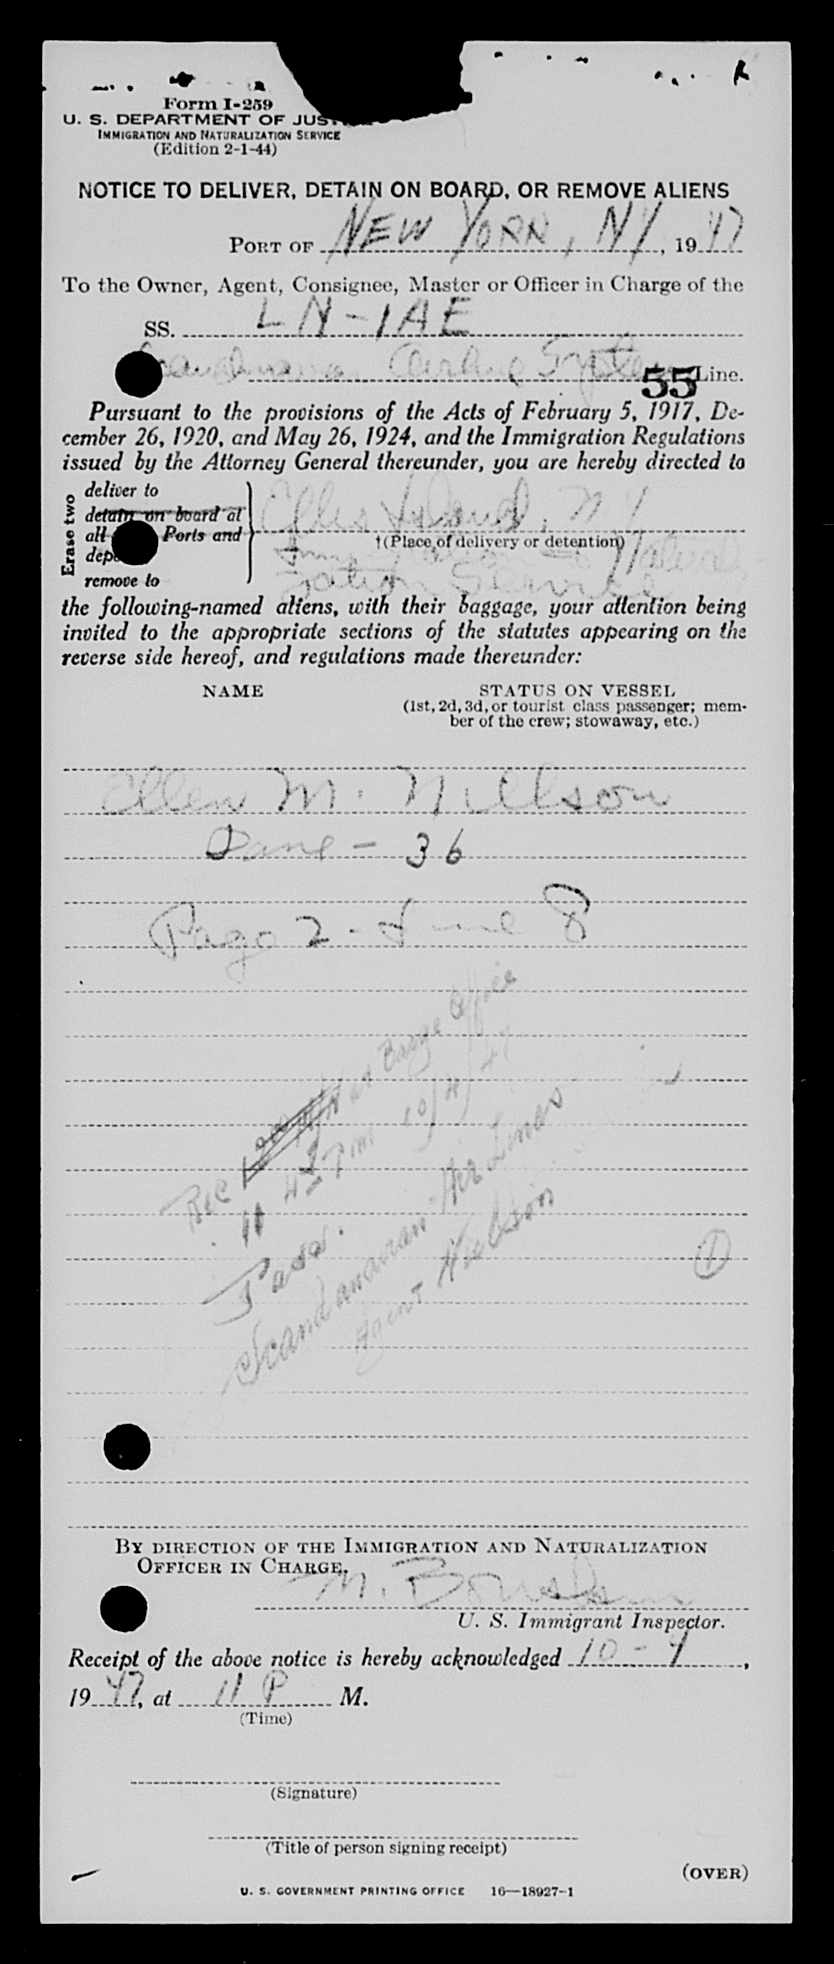 Form I-259
U. S. DEPARTMENT OF JUS
IMMIGRATION AND NATURALIZATION SERVICE
(Edition 2-1-44)
NOTICE TO DELIVER, DETAIN ON BOARD, OR REMOVE ALIENS
PORT OF NEW YORK, NY, 1947
To the Owner, Agent, Consignee, Master or Officer in Charge of the
SS. LN-IAE
Scandinavian Airline System Line.
55
Pursuant to the provisions of the Acts of February 5, 1917, De-
cember 26, 1920, and May 26, 1924, and the Immigration Regulations
issued by the Attorney General thereunder, you are hereby directed to
Erase two
deliver to
detain on board at
all Ports and
dep
remove to
Ellis Island, NY
†(Place of delivery or detention)
Immigration & Naturali-
zation Service
the following-named aliens, with their baggage, your attention being
invited to the appropriate sections of the statutes appearing on the
reverse side hereof, and regulations made thereunder:
NAME
STATUS ON VESSEL
(1st, 2d, 3d, or tourist class passenger; mem-
ber of the crew; stowaway, etc.)
Ellen M. Nillson
Dane - 36
Page 2 - Line 8
Rec at Barge Office
11 45 PM 10/4/47
Pass.
Scandanavian Air Lines
Agent Nielson
1
BY DIRECTION OF THE IMMIGRATION AND NATURALIZATION
OFFICER IN CHARGE.
M.
U. S. Immigrant Inspector.
Receipt of the above notice is hereby acknowledged 10-4,
1947, at 11 P M.
(Time)
(Signature)
(Title of person signing receipt)
(OVER)
U. S. GOVERNMENT PRINTING OFFICE 16—18927-1